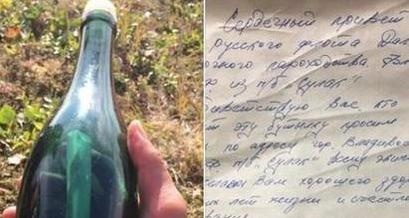 Сердечный привет
русского флота Дал
очного пароходства. Вл
ф из п/б "Сулак"
иветствую Вас, кто
т эту бутылку просим
по адресу гор. Владивос
п/б "Сулак" всему экип
Вам хорошего здор
лет жизни и счастли